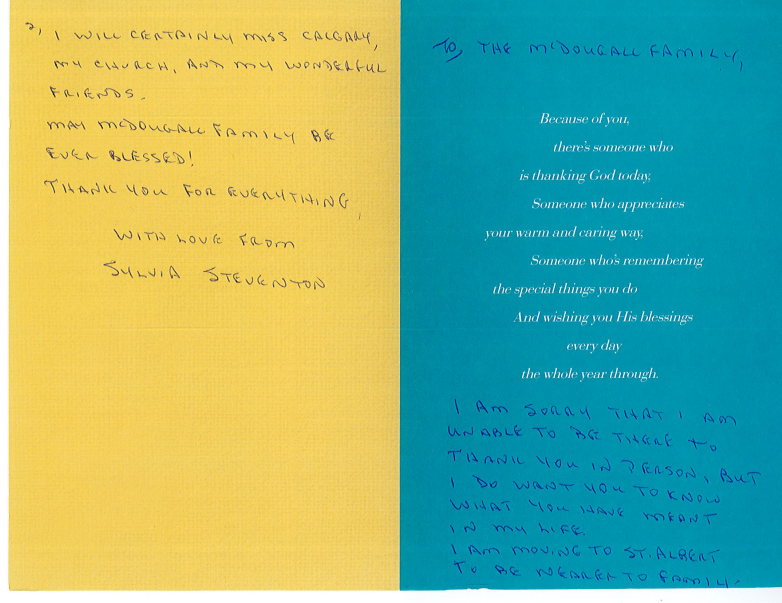 2,
I WILL CERTAINLY MISS CALGARY,
MY CHURCH, AND MY WONDERFUL
FRIENDS.
MAY MCDOUGALL FAMILY BE
EVER BLESSED!
THANK YOU FOR EVERYTHING,
WITH LOVE FROM
SYLVIA STEVENTON
TO, THE MCDOUGALL FAMILY,
Because of you,
there's someone who
is thanking God today,
Someone who appreciates
your warm and caring way,
Someone who's remembering
the special things you do
And wishing you His blessings
every day
the whole year through.
I AM SORRY THAT I AM
UNABLE TO BE THERE to
THANK YOU IN PERSON, BUT
I DO WANT YOU TO KNOW
WHAT YOU HAVE MEANT
IN MY LIFE.
I AM MOVING TO ST. ALBERT
TO BE NEARER TO FAMILY.